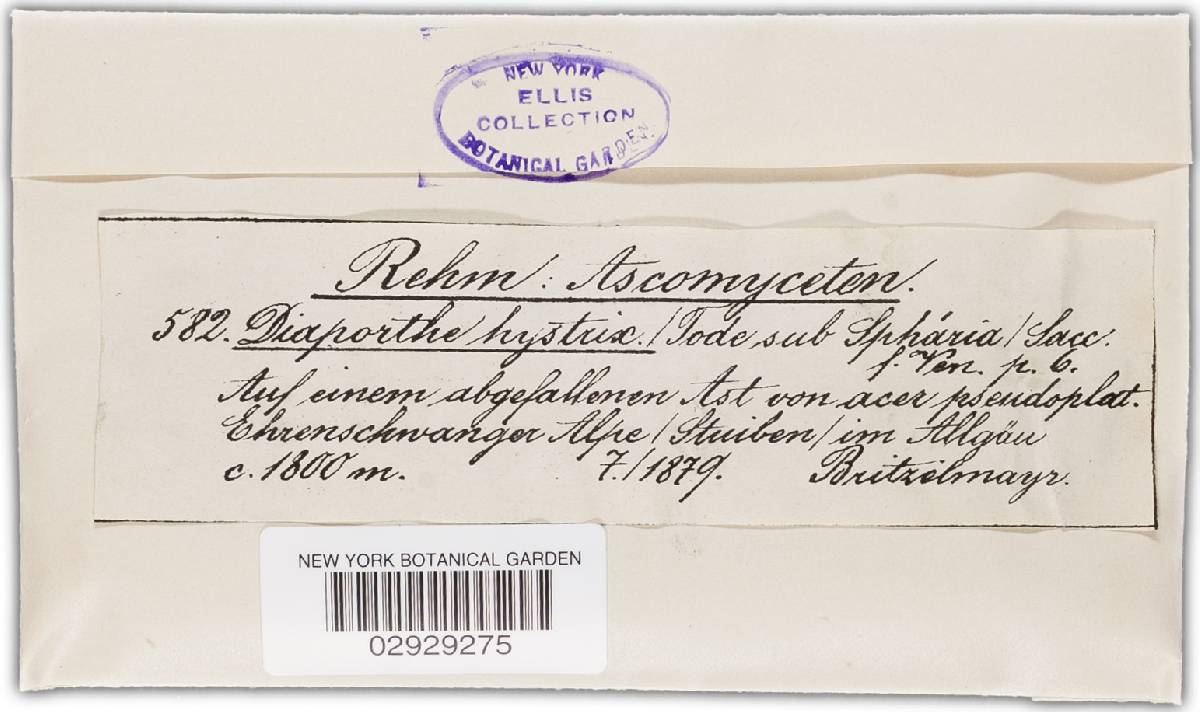 NEW YORK
ELLIS
COLLECTION
BOTANICAL GARDEN.
Rehm: Ascomyceten.
582. Diaporthe hystrix. / Tode sub Sphäria / Sacc.
f. Ven. p. 6.
Auf einem abgefallenen Ast von acer pseudoplat.
Ehrenschwanger Alpe / Stuiben / im Allgäu
c. 1800 m. 7./1879. Britzelmayr.
NEW YORK BOTANICAL GARDEN
02929275